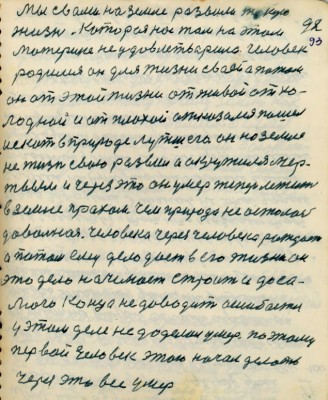 Мы с вами на земле развили такую
жизнь. Которая нас там на этом 92
материке не удовлетворила. Человек 93
родился он для жизни своей а потом
он от этой жизни от живой от хо-
лодной и от плохой отказался пошел
искать в природе лутшего он на земле
не жизнь свою развил а окружился мер-
твым и через это он умер теперь лежит
в земле прахом чем природа не осталась
довольная. Человека через человека рождает
а потом ему дело дает в его жизни он
это дело начинает строить и до са-
мого конца не доводит ошибается
у этом деле не доделал умер поэтому
первой человек этого начал делать
через это все умер